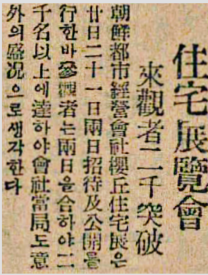 住宅展覽會
來觀者二千突破
朝鮮都市經營會社櫻丘住宅展은
廿日二十一日兩日招待及公開를
行한바參觀者는兩日을合하야二
千名以上에達하야會社當局도意
外의盛況으로생각한다